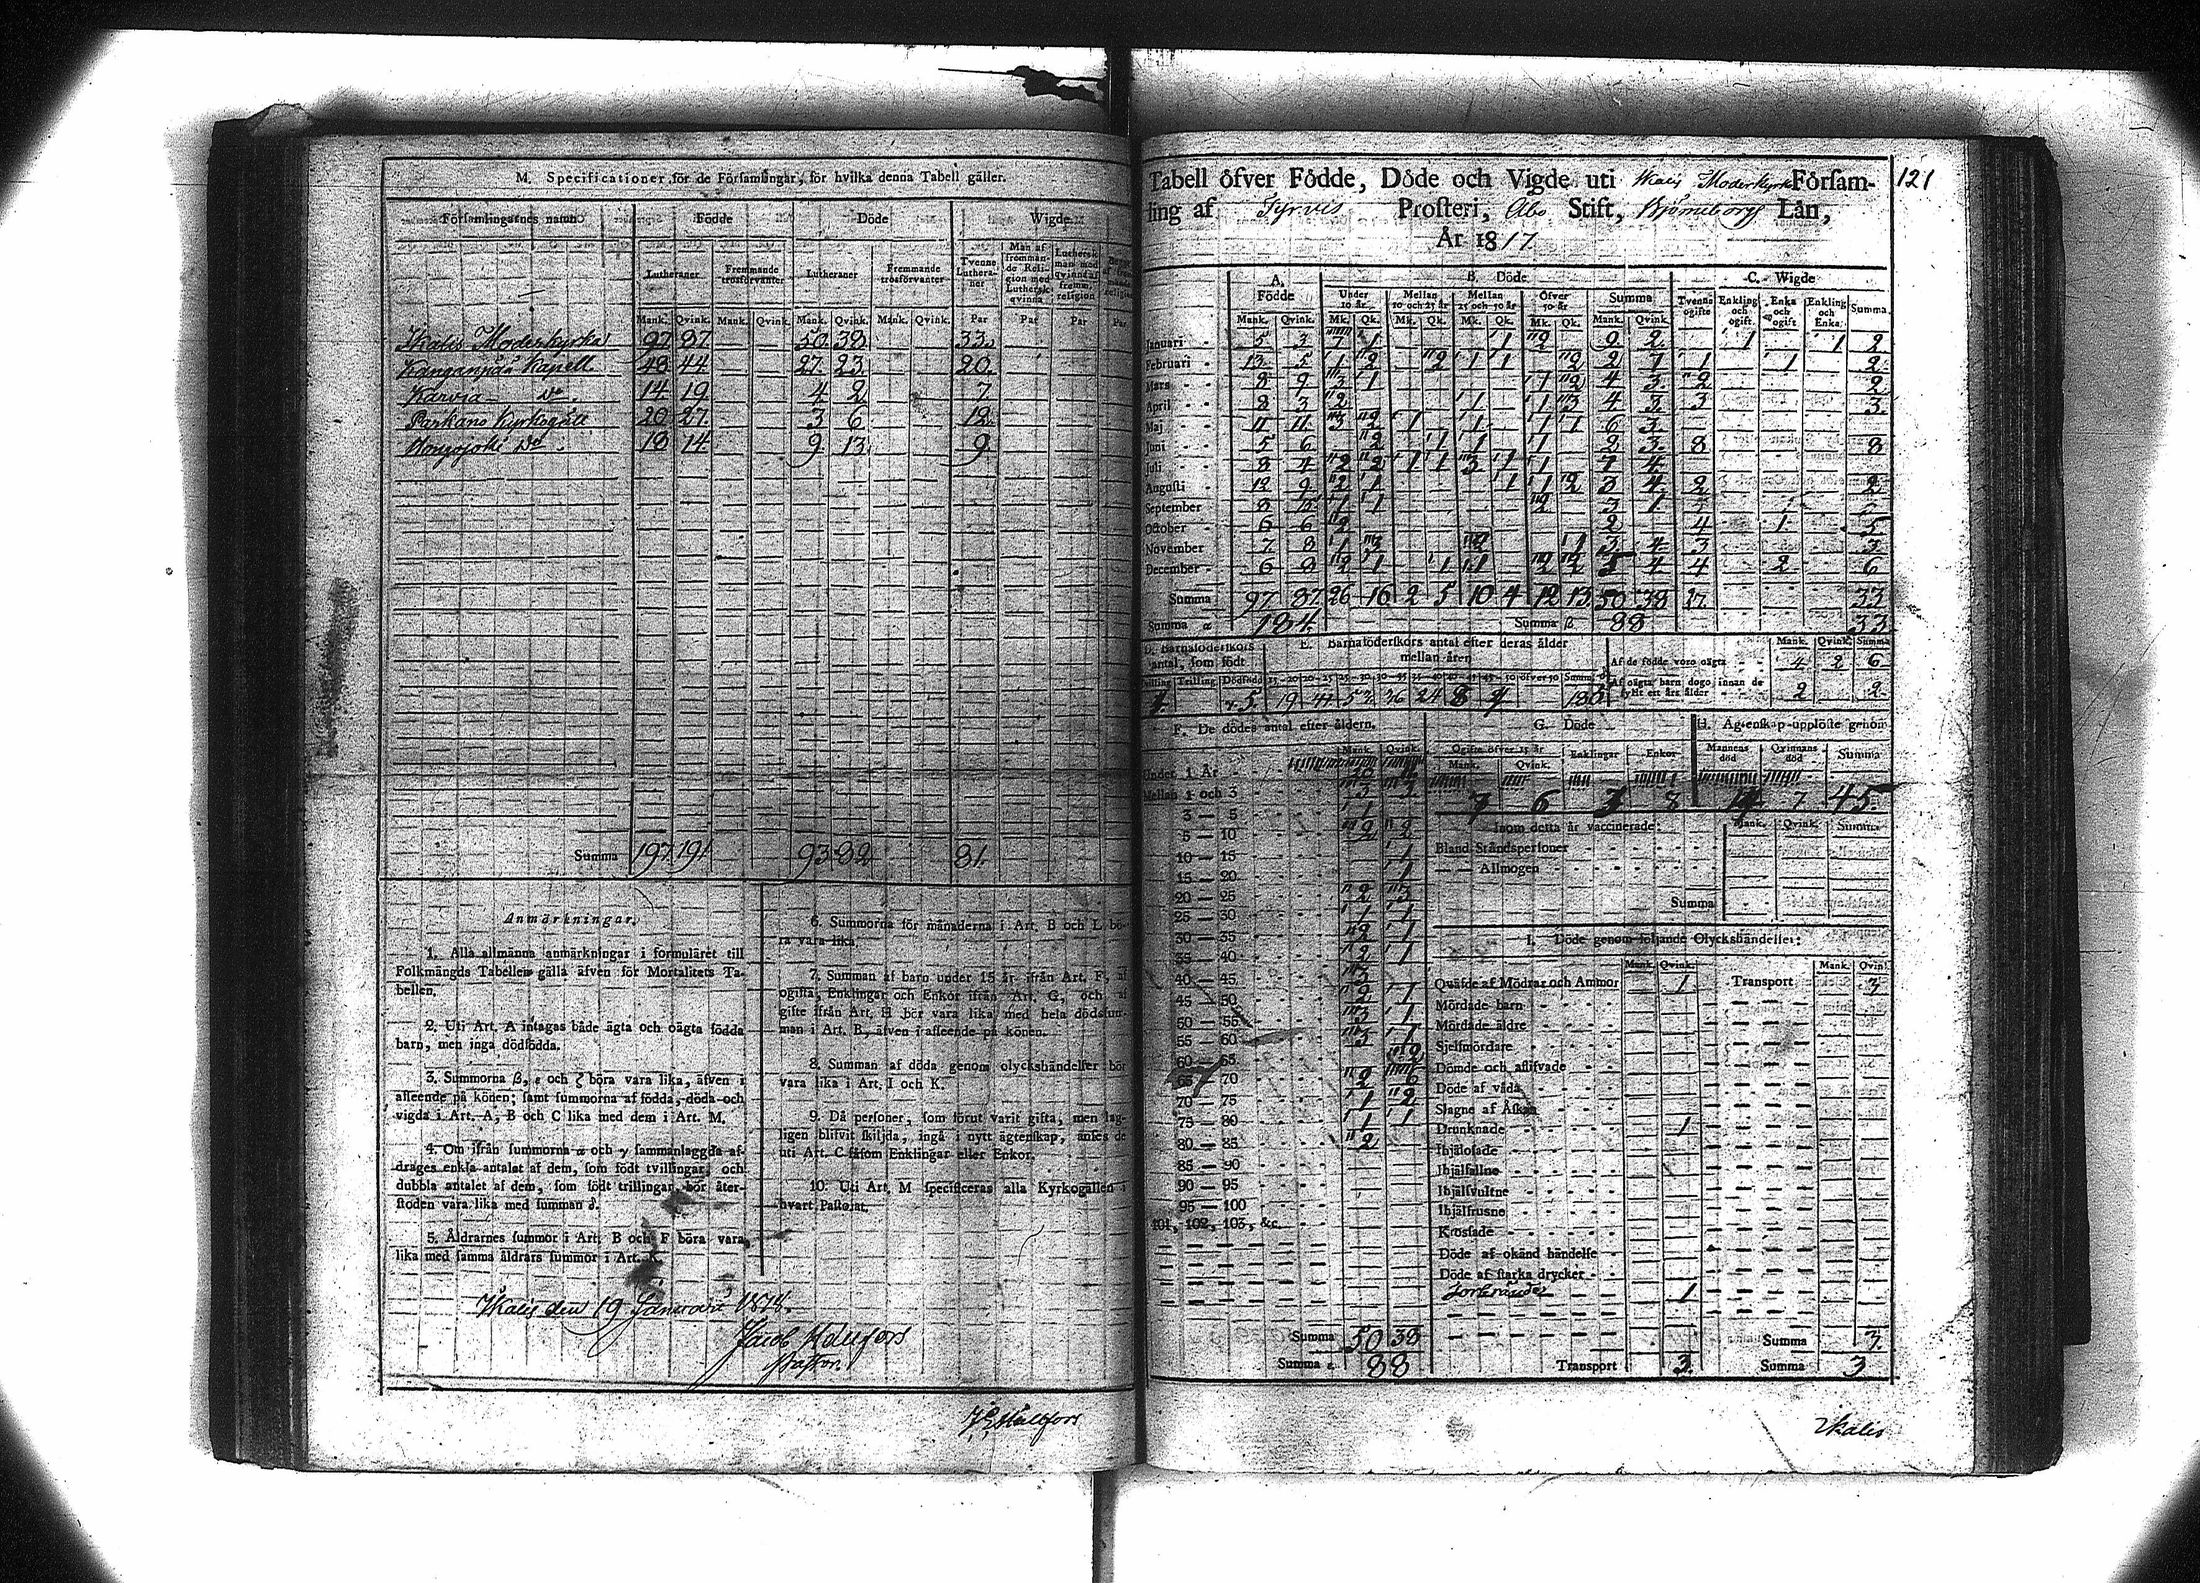 M. Specificationer för de Församlingar, för hvilka denna Tabell gäller.
Församlingarnes namn Födde Döde Wigde
Lutheraner Fremmande trosförvanter Lutheraner Fremmande trosförvanter Tvenne Lutheraner Man af fremmande Religion med Luthersk qvinna Luthersk man med qvinna af fremm. religion
Mank. Qvink. Mank. Qvink. Mank. Qvink. Mank. Qvink. Par Par Par Par
Ikalis Moderkyrka 97 87 50 38 33
Kangasjä Kapell 48 44 27 23 20
Karvia Do 14 19 4 2 7
Parkano Kyrkogäll 20 27 3 6 12
Hongojoki Do 18 14 9 13 9
Summa 197 191 93 82 81
Anmärkningar.
1. Alla allmänna anmärkningar i formuläret till
Folkmängds Tabellen gälla äfven för Mortalitets Ta-
bellen.
2. Uti Art. A intagas både ägta och oägta födda
barn, men inga dödfödda.
3. Summorna β, ε och ζ böra vara lika, äfven i
afseende på könen; samt summorna af födda, döda och
vigda i Art. A, B och C lika med dem i Art. M.
4. Om ifrån summorna α och γ sammanlagda af-
drages enkla antalet af dem, som födt tvillingar, och
dubbla antalet af dem, som födt trillingar, bör åter-
stoden vara lika med summan δ.
5. Åldrarnes summor i Art. B och F böra vara
lika med samma åldrars summor i Art. K.
6. Summorna för månaderna i Art. B och L bö-
ra vara lika.
7. Summan af barn under 15 år ifrån Art. F, af
ogifta, Enklingar och Enkor ifrån Art. G, och af
gifte ifrån Art. H bör vara lika med hela dödssum-
man i Art. B, äfven i afseende på könen.
8. Summan af döda genom olyckshändelser bör
vara lika i Art. I och K.
9. Då personer, som förut varit gifta, men lag-
ligen blifvit skiljda, ingå i nytt ägtenskap, anses de
uti Art. C såsom Enklingar eller Enkor.
10. Uti Art. M specificeras alla Kyrkogällen i
hvart Pastorat.
Ikalis den 19 Januarii 1818.
Jacob Hallfors
Pastor
Hallfors
Tabell öfver Födde, Döde och Vigde uti Ikalis Moderkyrka Försam- 121
ling af Tyrvis Prosteri, Åbo Stift, Björneborgs Län,
År 1817
A. Födde B. Döde C. Wigde
Under 10 år Mellan 10 och 25 år Mellan 25 och 50 år Öfver 50 år Summa Tvenne ogifte Enkling och ogift Enka och ogift Enkling och Enka Summa
Mank. Qvink. Mk. Qk. Mk. Qk. Mk. Qk. Mk. Qk. Mank. Qvink.
Januari 5 3 7 1 1 2 9 2 1 1 2
Februari 13 5 1 2 2 1 1 2 2 7 1 1 2
Mars 8 9 3 1 1 2 4 3 2 2
April 8 3 2 1 1 3 4 3 3 3
Maj 11 11 3 2 1 1 1 1 6 3
Juni 5 6 2 1 1 1 2 3 8 8
Juli 8 4 2 2 1 1 3 1 1 7 4
Augusti 12 9 2 1 1 1 2 3 4 2 2
September 8 1 1 2 3 1
October 6 6 2 2 4 1 5
November 7 8 1 3 2 1 3 4 3 3
December 6 8 2 1 1 1 2 2 5 4 4 2 6
Summa 97 87 26 16 2 5 10 4 12 13 50 38 27 33
Summa α 184 Summa β 88 33
D. Barnaföderskors antal, som födt
Tvilling Trilling Dödfödd
E. Barnaföderskors antal efter deras ålder mellan åren
15-20 20-25 25-30 30-35 35-40 40-45 45-50 öfver 50 Summa δ
19 41 52 36 24
Mank. Qvink. Summa
Af de födde voro oägta 4 2 6
Af oägta barn dogo innan de fyllt ett års ålder 2 2
F. De dödes antal efter åldern.
Mank. Qvink.
Under 1 År 20
Mellan 1 och 3 3
3 — 5 1
5 — 10 2 2
10 — 15 1
15 — 20 1
20 — 25 2 3
25 — 30 1 1
30 — 35 2 1
35 — 40 2 1
40 — 45 3
45 — 50 2 1
50 — 55 3 1
55 — 60 3 1
60 — 65 2
65 — 70 2 6
70 — 75 1 2
75 — 80 1 1
80 — 85 2
85 — 90
90 — 95
95 — 100
101, 102, 103, &c.
Summa 50 38
Summa ε 88
G. Döde
Ogifte öfver 15 år Enklingar Enkor
Mank. Qvink.
7 6 8
H. Ägtenskap upplöste genom
Mannens död Qvinnans död Summa
7
Inom detta år vaccinerade: Mank. Qvink. Summa
Bland Ståndspersoner
— — Allmogen
Summa
I. Döde genom följande Olyckshändelser:
Mank. Qvink. Mank. Qvink.
Quäfde af Mödrar och Ammor 1 Transport 3
Mördade barn
Mördade äldre
Sjelfmördare
Dömde och aflifvade
Döde af våda
Slagne af Åskan
Drunknade 1
Ihjälosade
Ihjälfallne
Ihjälsvultne
Ihjälfrusne
Krossade
Döde af okänd händelse
Döde af starka drycker
1
Summa 3
Transport 3. Summa 3
Ikalis